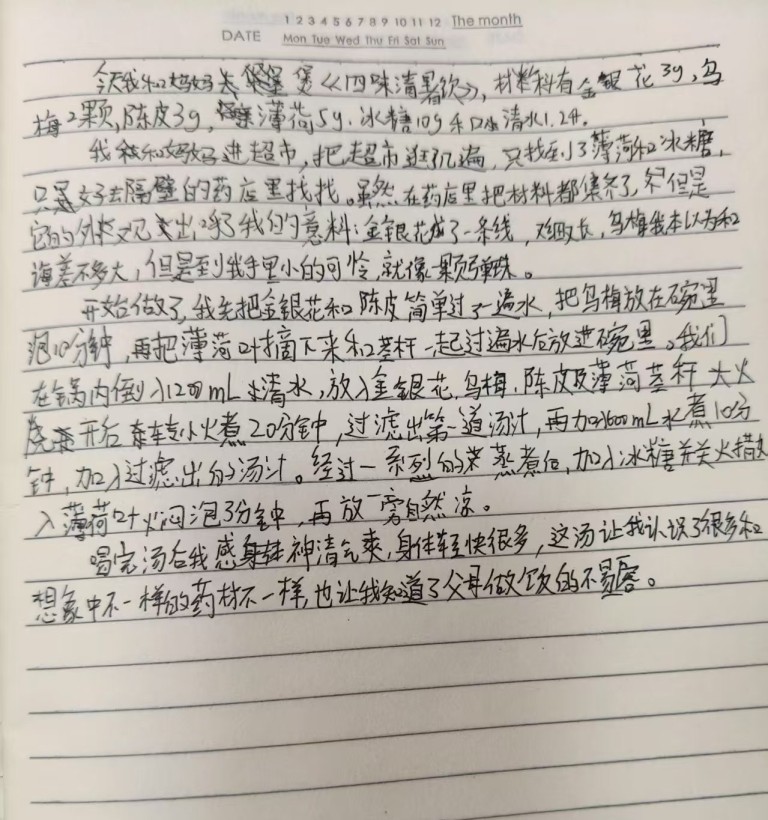 1 2 3 4 5 6 7 8 9 10 11 12 The month
DATE Mon Tue Wed Thu Fri Sat Sun
今天我和妈妈去煲《四味清暑饮》，材料有金银花3g，乌
梅2颗，陈皮3g，薄荷5g，冰糖10g和清水1.2升。
我和妈妈进超市，把超市逛了几遍，只找到了薄荷和冰糖，
只好去隔壁的药店里找找。虽然在药店里把材料都集齐了，但是
它的外形又已突出了我的意料：金银花成了一条线，又细又长，乌梅我本以为和
海差不多大，但是到我手里小的可怜，就像一颗弹珠。
开始做了，我先把金银花和陈皮简单过了一遍水，把乌梅放在碗里
泡10分钟，再把薄荷叶摘下来和茎杆一起过遍水后放进碗里。我们
在锅内倒入1200mL清水，放入金银花，乌梅，陈皮及薄荷茎秆大火
烧开后转小火煮20分钟，过滤出第一道汤汁，再加600mL水煮10分
钟，加入过滤出的汤汁。经过一系列的蒸煮后，加入冰糖关火
入薄荷叶焖泡3分钟，再放一旁自然凉。
喝完汤后我感身神清气爽，身体轻快很多，这汤让我认识了很多和
想象中不一样的药材不一样，也让我知道了父母做饮的不易。